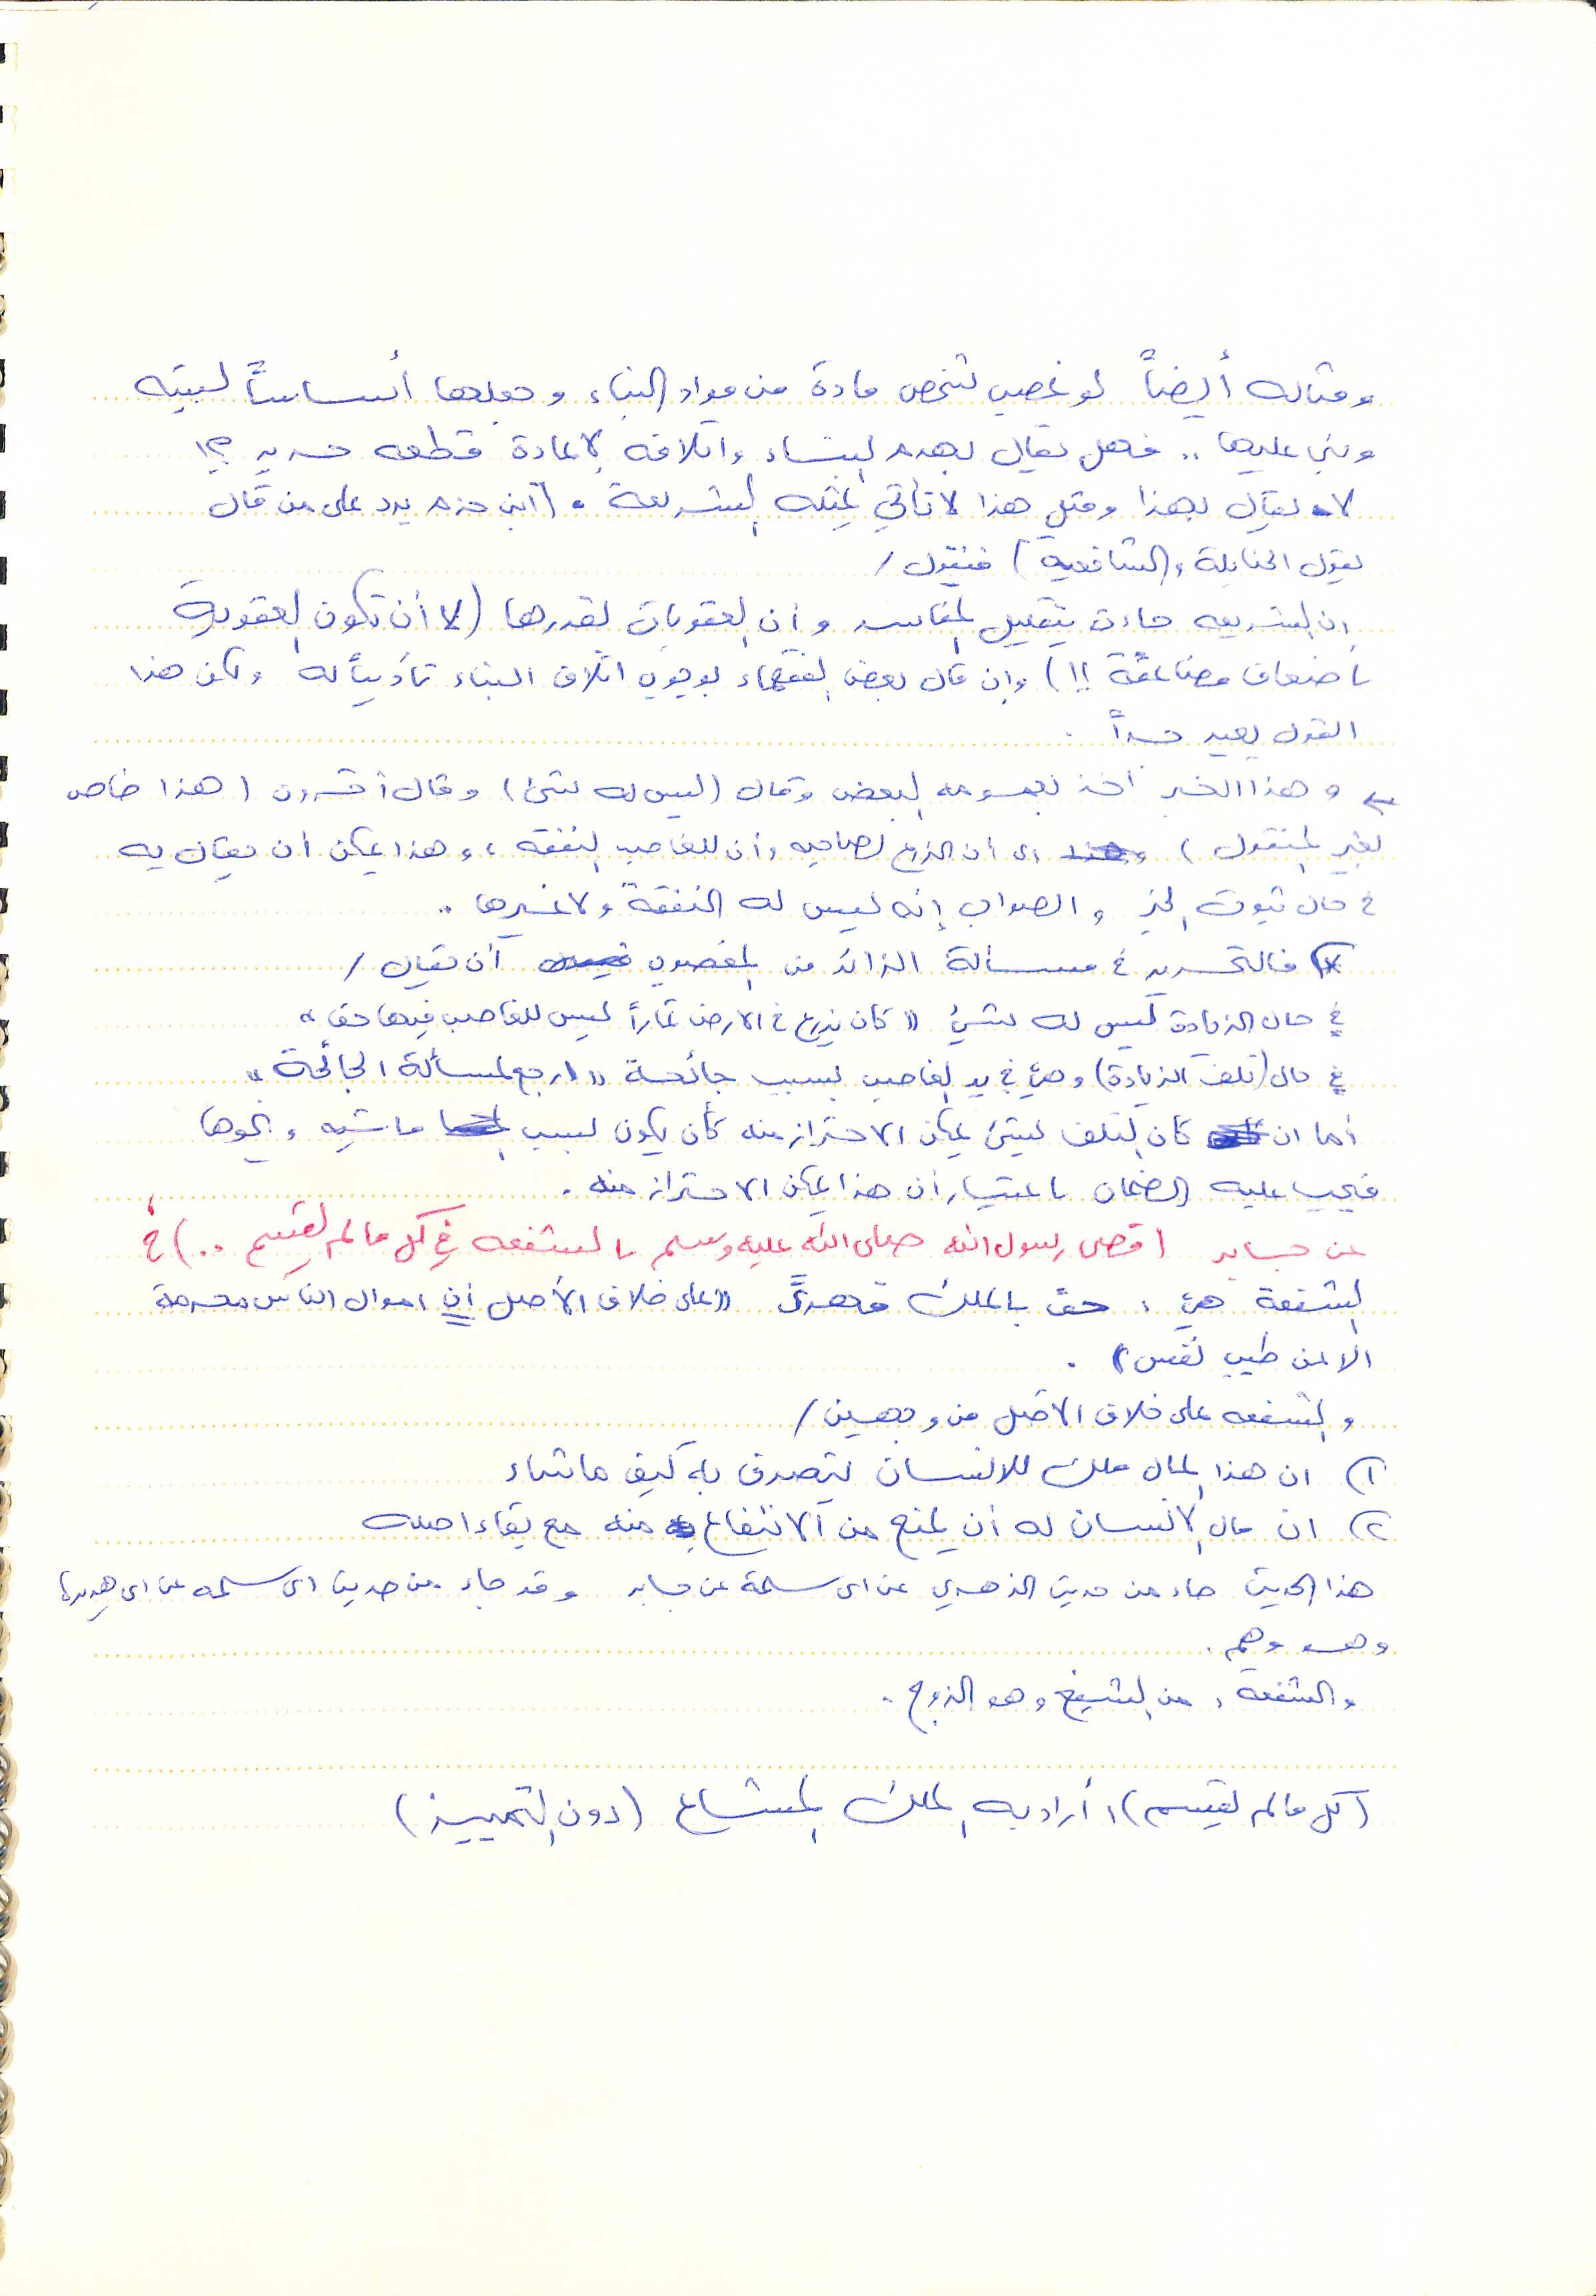 ومثاله أيضاً لو غصب شخص مادة من مواد البناء وجعلها أساساً لبيته
وبنى عليها .. فهل يقال بهدم البناء واتلافه لإعادة قطعه حديد ؟!
لا يقال بهذا ومثل هذا لا تأتي بمثله الشريعة . (ابن حزم يرد على من قال
بقول الحنابلة والشافعيه) فنقول /
ان الشريعه جاءت بتقليل المفاسد وأن العقوبات بقدرها (لا أن تكون العقوبة
باضعاف مضاعفة !!) وإن قال بعض الفقهاء بوجوب اتلاف البناء تأديباً له ولكن هذا
القول بعيد جداً .
* وهذا الخبر أخذ بعمومه البعض وقال (ليس له شيء) وقال آخرون (هذا خاص
بغير المنقول) اى أن الزرع لصاحبه وأن للغاصب النفقه ، وهذا يمكن أن يقال به
في حال ثبوت الخبر والصواب إنه ليس له النفقة ولا غيرها .
* فالتحرير في مسألة الزائد من المغصوب أن يقال /
في حال الزيادة ليس له شيء "كان يزرع في الارض ثماراً ليس للغاصب فيها حق"
في حال (تلف الزيادة) وهي في يد الغاصب بسبب جائحة "ارجع لمسألة الجائحة"
أما ان كان التلف لشيء يمكن الاحتراز منه كأن يكون بسبب ماشيه ونحوها
فيجب عليه الضمان باعتبار أن هذا يمكن الاحتراز منه .
عن جابر (قضى رسول الله صلى الله عليه وسلم بالشفعه في كل مالم يقسم ..) خ
الشفعة هي : حق بالملك قهريَّ "على خلاف الأصل أن اموال الناس محرمة
الا عن طيب نفس" .
والشفعه على خلاف الاصل من وجهين /
١) ان هذا المال ملك للانسان يتصرف به كيف ما شاء
٢) ان مال الانسان له أن يمنع من الانتفاع منه مع بقاء اصله
هذا الحديث جاء من حديث الزهري عن ابى سلمة عن جابر وقد جاء من حديث ابى سلمه عن ابى هريرة
وهو وهم .
والشفعة : من الشفع وهو الزوج .
(كل مالم يقسم) : أراد به الملك المشاع (دون التمييز)